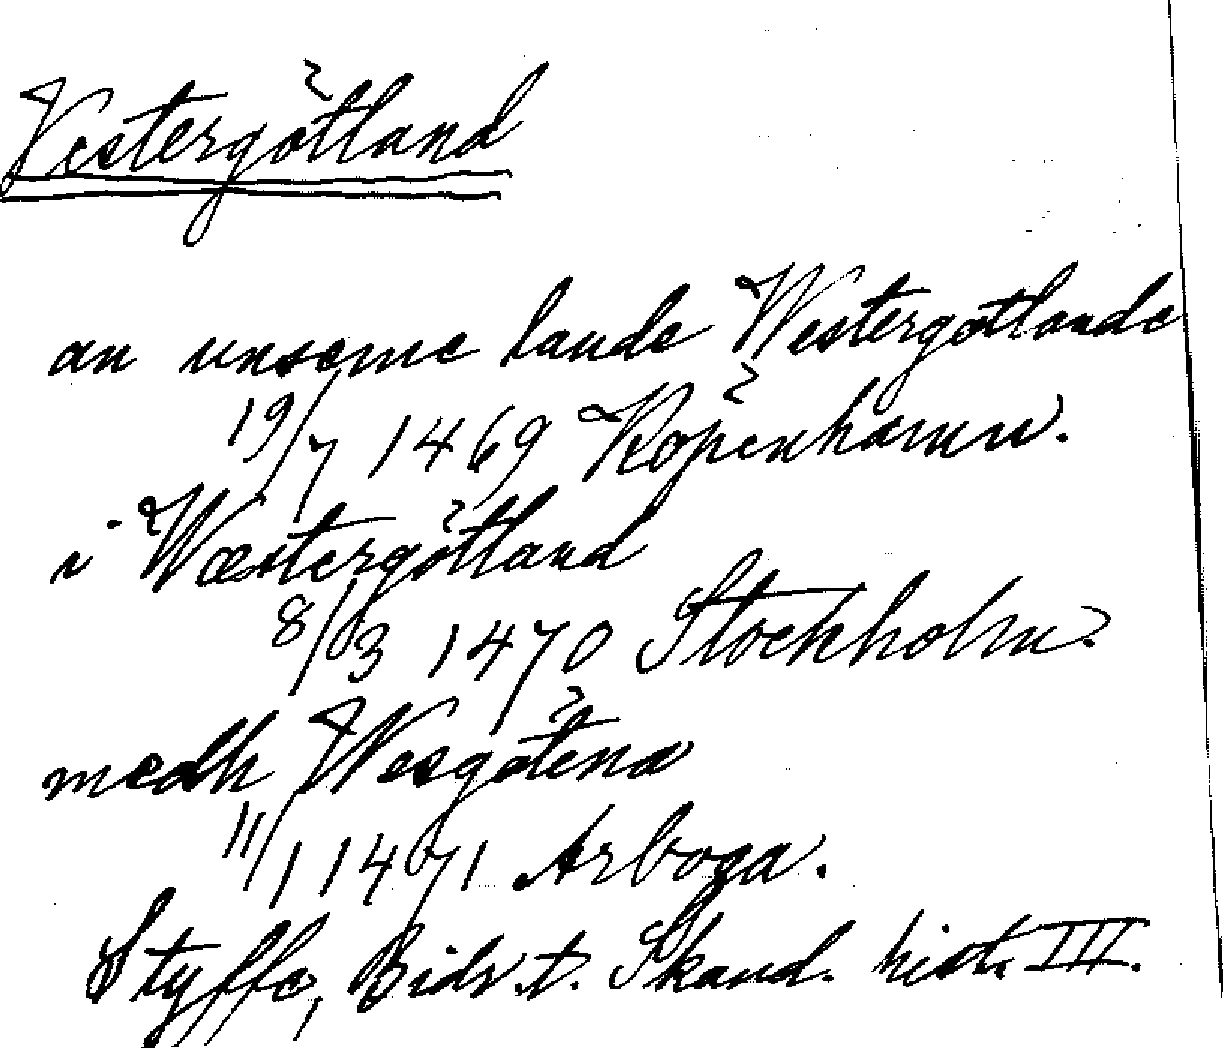 Vestergötland
an unseme lande Westergötlande
19/7 1469 Köpenhamn.
i Wæstergötland
8/3 1470 Stockholm.
medh Wesgötena
11/1 1471 Arboga.
Styffe, Bidr. t. Skand. hist. III.